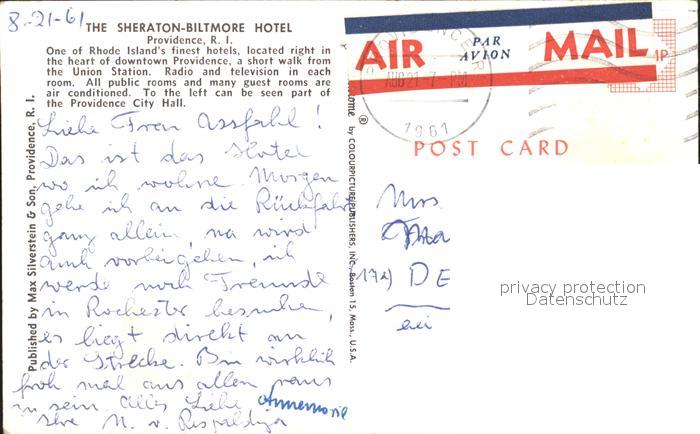 8-21-61
THE SHERATON-BILTMORE HOTEL
Providence, R. I.
One of Rhode Island's finest hotels, located right in
the heart of downtown Providence, a short walk from
the Union Station. Radio and television in each
room. All public rooms and many guest rooms are
air conditioned. To the left can be seen part of
the Providence City Hall.
Liebe Frau Assfahl!
Das ist das Hotel
wo ich wohne. Morgen
gehe ich an die Rückfahrt
ganz allein, na wird
auch vorbeigehen, ich
werde noch Freunde
in Rochester besuchen,
es liegt direkt an
der Strecke. Bin wirklich
froh mal aus allen raus
zu sein. Alles Liebe Annemarie
Ihre
Published by Max Silverstein & Son, Providence, R. I.
by COLOURPICTURE PUBLISHERS, INC., Boston 15, Mass., U.S.A.
AIR PAR AVION MAIL
AUG 21 7-PM
1961
POST CARD
Mrs.
DE
privacy protection
Datenschutz